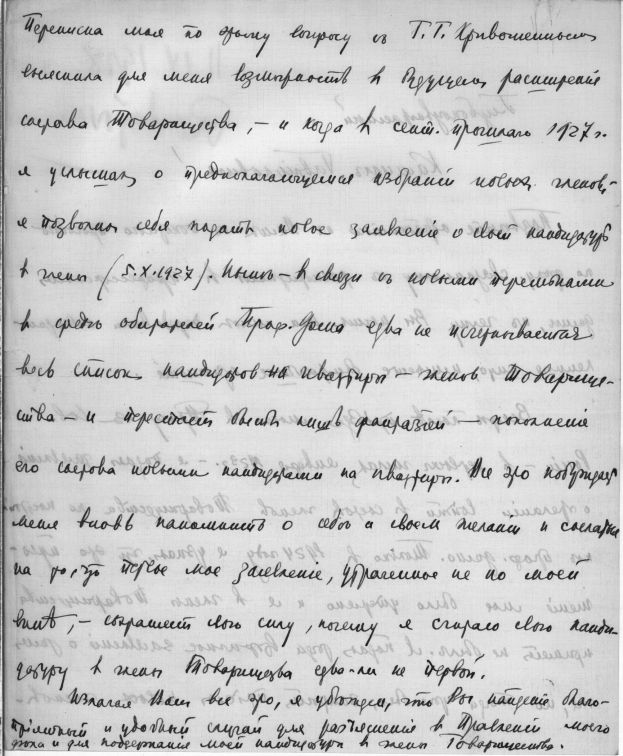 Переписка моя по этому вопросу съ Г.Г. Кривошеинымъ
выяснила для меня возможность въ будущемъ расширенія
состава Товарищества, – и когда въ сент. прошлаго 1927 г.
я услышалъ о предполагающемся избраніи новыхъ членовъ,
я позволилъ себѣ подать новое заявленіе о своей кандидатурѣ
въ члены (5.X.1927). Нынѣ – въ связи съ новыми перемѣнами
въ средѣ обитателей Проф. Дома едва не исчерпывается
весь списокъ кандидатовъ на квартиры – членовъ Товарище-
ства – и перестаетъ быть лишь фантазіей – пополненіе
его состава новыми кандидатами на квартиры. Все это побуждаетъ
меня вновь напомнить о себѣ и своемъ желаніи и сослаться
на то, что первое мое заявленіе, утраченное не по моей
винѣ, – сохраняетъ свою силу, почему я считаю свою канди-
датуру въ члены Товарищества едва-ли не первой.
Излагая Вамъ все это, я убѣжденъ, что Вы найдете благо-
пріятный и удобный случай для разъясненія въ Правленіи моего
дѣла и для поддержанія моей кандидатуры въ члены Товарищества.